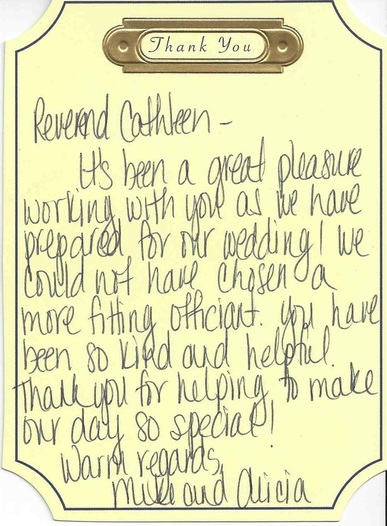 Thank You
Reverend Cathleen -
It's been a great pleasure
working with you as we have
prepared for our wedding! We
could not have chosen a
more fitting officiant. You have
been so kind and helpful.
Thank you for helping to make
our day so special!
Warm regards,
Mike and Alicia